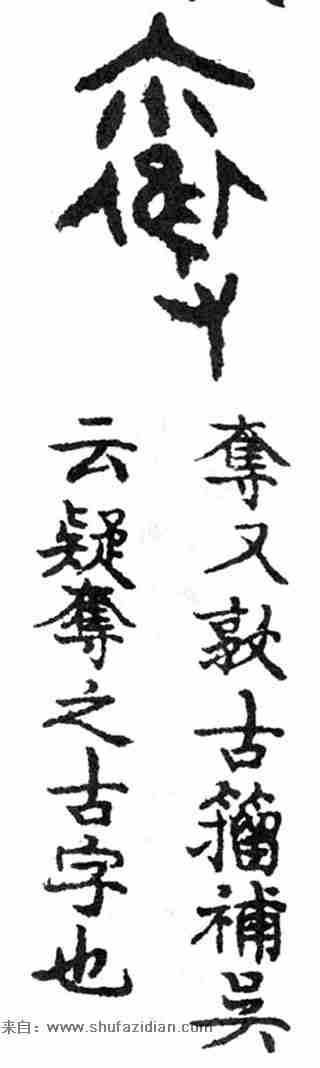 奪又敦古籒補吳
云疑奪之古字也
来自：www.shufazidian.com